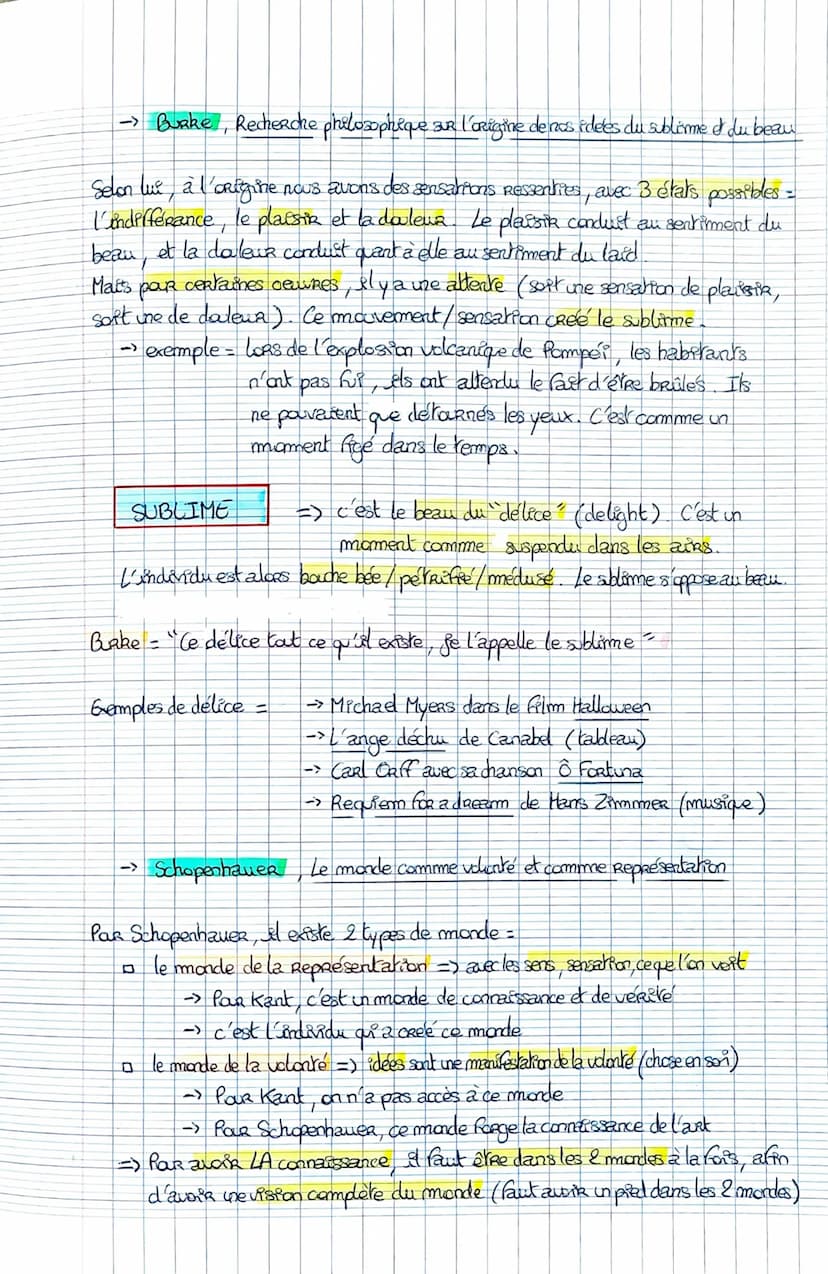 → Burke, Recherche philosophique sur l'origine de nos idées du sublime et du beau
Selon lui, à l'origine nous avons des sensations ressenties, avec 3 états possibles =
l'indifférance, le plaisir et la douleur. Le plaisir conduit au sentiment du
beau, et la douleur conduit quant à elle au sentiment du laid.
Mais par certaines oeuvres, il y a une attente (soit une sensation de plaisir,
soit une de douleur). Ce mouvement/sensation créé le sublime.
→ exemple = lors de l'explosion volcanique de Pompéi, les habitants
n'ont pas fui, ils ont attendu le fait d'être brûlés. Ils
ne pouvaient que détournés les yeux. C'est comme un
moment figé dans le temps.
SUBLIME => c'est le beau du "délice" (delight). C'est un
moment comme suspendu dans les airs.
L'individu est alors bouche bée/pétrifié/médusé. Le sublime s'oppose au beau.
Burke = "Ce délice tout ce qu'il existe, je l'appelle le sublime"
Exemples de délice = → Michael Myers dans le film Halloween
→ L'ange déchu de Canabel (tableau)
→ Carl Orff avec sa chanson Ô Fortuna
→ Requiem for a dream de Hans Zimmer (musique)
→ Schopenhauer, Le monde comme volonté et comme Représentation
Par Schopenhauer, il existe 2 types de monde =
▫ le monde de la Représentation => avec les sens, sensation, ce que l'on voit
→ Pour Kant, c'est un monde de connaissance et de vérité
→ c'est l'individu qui a créé ce monde
▫ le monde de la volonté => idées sont une manifestation de la volonté (chose en soi)
→ Pour Kant, on n'a pas accès à ce monde
→ Pour Schopenhauer, ce monde forge la connaissance de l'art
=> Pour avoir LA connaissance, il faut être dans les 2 mondes à la fois, afin
d'avoir une vision complète du monde (faut avoir un pied dans les 2 mondes)